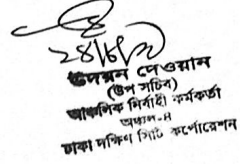 ২৪/৮/২০
উদয়ন দেওয়ান
(উপ সচিব)
আঞ্চলিক নির্বাহী কর্মকর্তা
অঞ্চল-৪
ঢাকা দক্ষিণ সিটি কর্পোরেশন